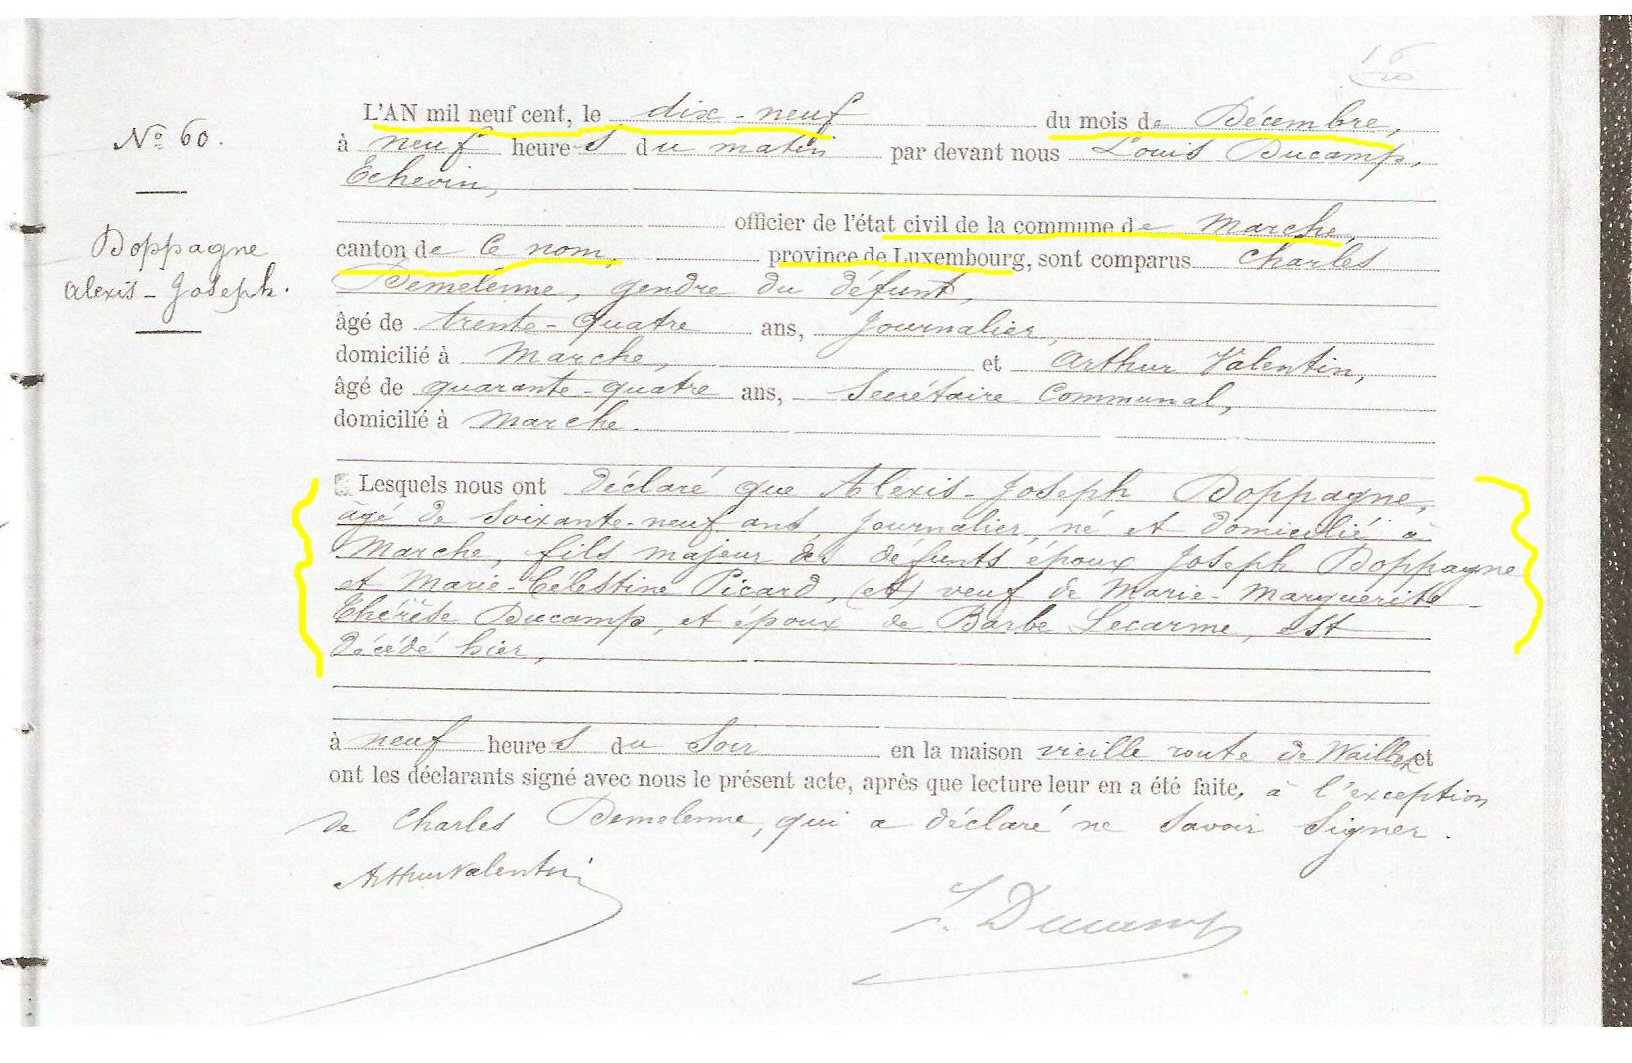 16
N° 60.
Doppagne
Alexis-Joseph.
L'AN mil neuf cent, le dix-neuf du mois de Décembre,
à neuf heures du matin par devant nous Louis Ducamp,
Echevin,
officier de l'état civil de la commune de Marche,
canton de ce nom, province de Luxembourg, sont comparus Charles
Demelenne, gendre du défunt,
âgé de trente-quatre ans, journalier,
domicilié à Marche, et Arthur Valentin,
âgé de quarante-quatre ans, Secrétaire Communal,
domicilié à Marche.
Lesquels nous ont déclaré que Alexis-Joseph Doppagne,
âgé de soixante-neuf ans, journalier, né et domicilié à
Marche, fils majeur des défunts époux Joseph Doppagne
et Marie-Célestine Picard, (et) veuf de Marie-Marguerite-
Thérèse Ducamp, et époux de Barbe Lecarme, est
décédé hier,
à neuf heures du soir en la maison vieille route de Waillet et
ont les déclarants signé avec nous le présent acte, après que lecture leur en a été faite, à l'exception
de Charles Demelenne, qui a déclaré ne savoir signer.
Arthur Valentin
L. Ducamp